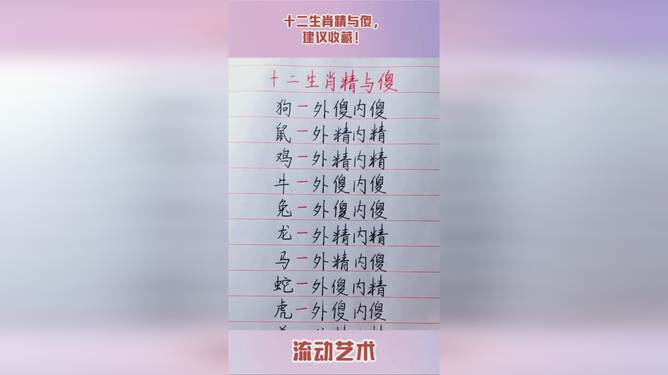 十二生肖精与傻，
建议收藏！
十二生肖精与傻
狗一外傻内傻
鼠一外精内精
鸡一外精内精
牛一外傻内傻
兔一外傻内傻
龙一外精内精
马一外精内傻
蛇一外傻内精
虎一外傻内傻
流动艺术